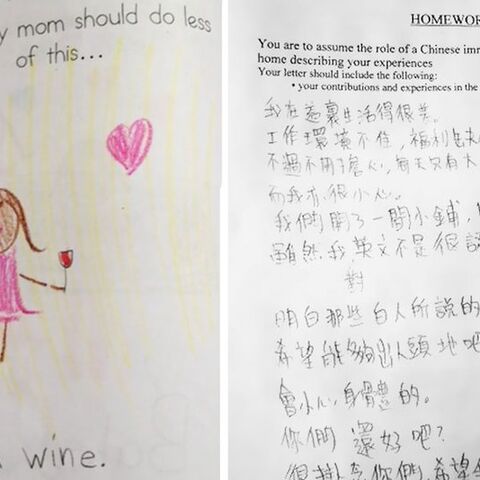 y mom should do less
of this...
wine.
HOMEWOR
You are to assume the role of a Chinese imm
home describing your experiences
Your letter should include the following:
• your contributions and experiences in the
我在這裏生活得很苦。
工作環境不佳，福利也
不過不用擔心，每天只有大
而我亦很小心。
我們開了一間小鋪，
雖然我英文不是很
對
明白那些白人所說的
希望能夠出人頭地吧
會小心身體的。
你們還好吧？
很掛念你們，希望